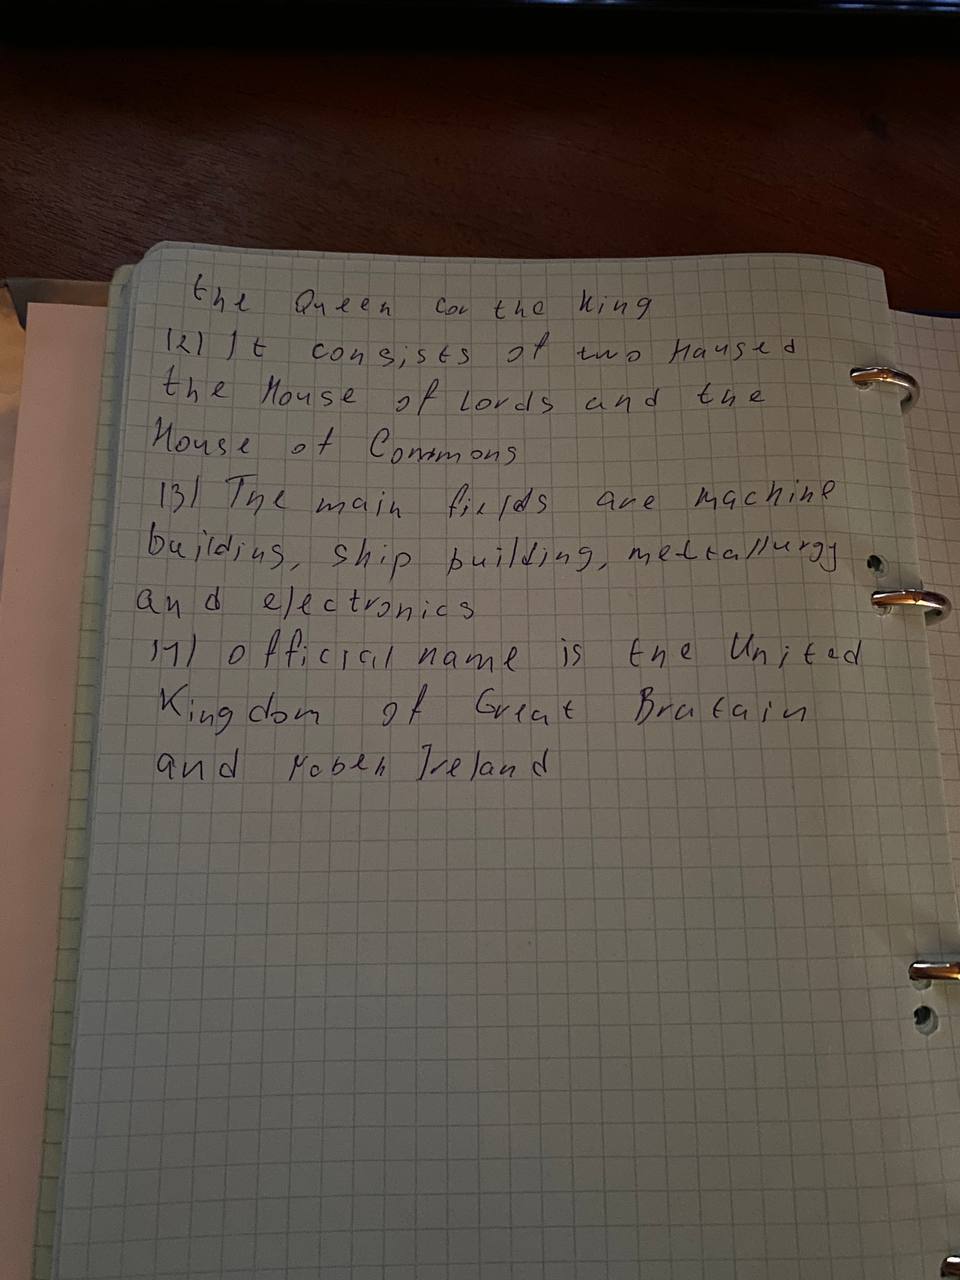 the Queen cor the King
12) It consists of two Hauses
the House of Lords and the
House of Commons
13) The main fields are machine
building, ship building, metallurgy
and electronics
14) official name is the United
Kingdom of Great Bratain
and Ireland